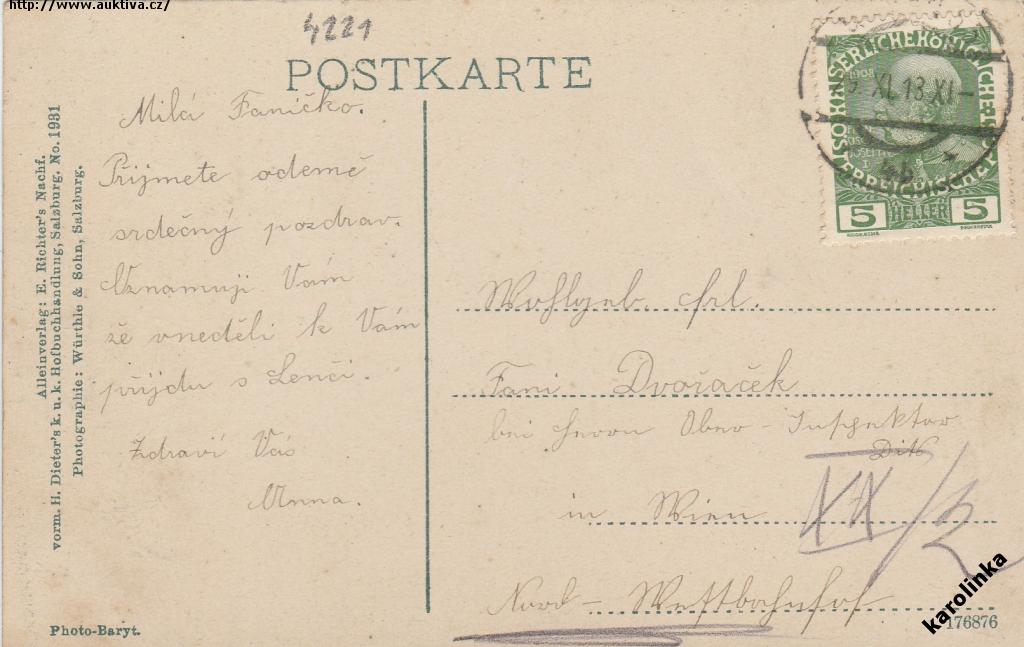 http://www.auktiva.cz/
4221
POSTKARTE
Alleinverlag: E. Richter's Nachf.
vorm. H. Dieter's k. u. k. Hofbuchhandlung, Salzburg. No. 1931
Photographie: Würthle & Sohn, Salzburg.
Milá Faničko.
Přijmete odemě
srdečný pozdrav.
Uznamuji Vám
že vneděli k Vám
přijdu s Lenči.
Zdraví Vás
Anna.
1908
XI. 13. XI
5 HELLER 5
Wohlgeb. Frl.
Fani Dvořaček
bei Herrn Ober-Inspektor
in Wien
XX/2
Nord-Westbahnhof
Photo-Baryt.
176876
karolinka